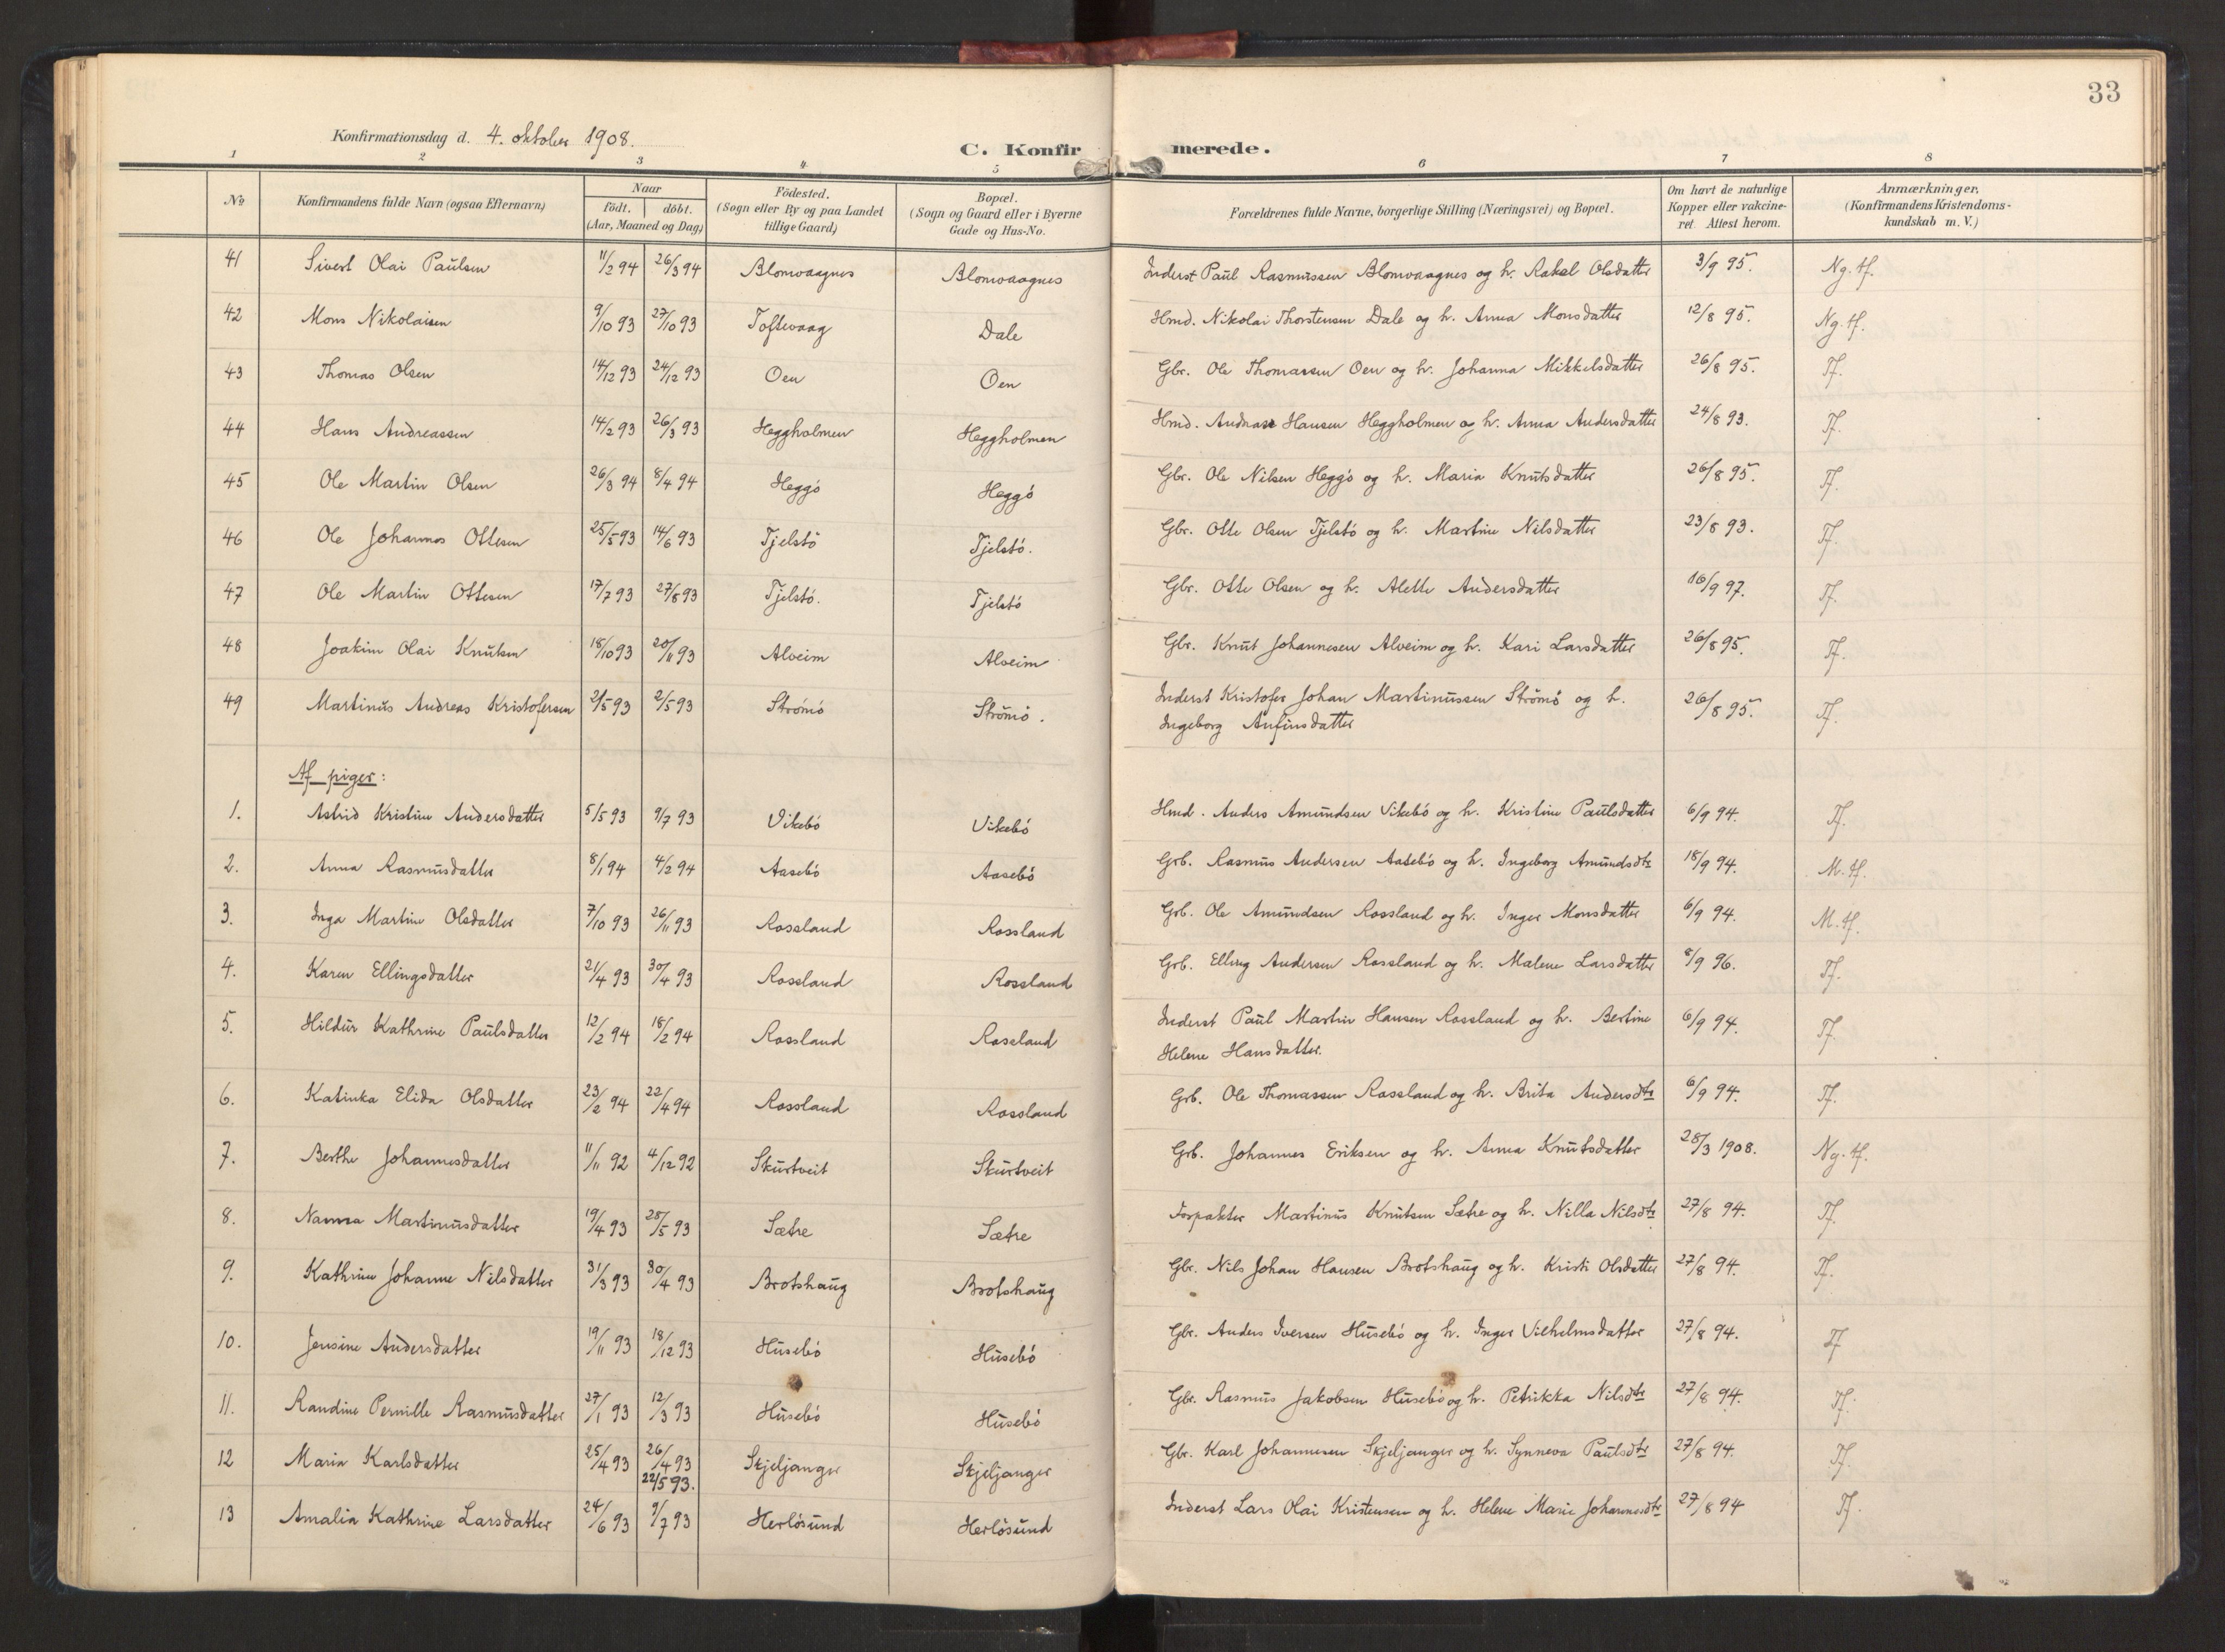 33
Konfirmationsdag d. 4. oktober 1908.
C. Konfirmerede.
1 2 3 4 5 6 7 8
No
Konfirmandens fulde Navn (ogsaa Efternavn)
Naar
födt. döbt.
(Aar, Maaned og Dag)
Födested.
(Sogn eller By og paa Landet
tillige Gaard)
Bopæl.
(Sogn og Gaard eller i Byerne
Gade og Hus-No.
Forældrenes fulde Navne, borgerlige Stilling (Næringsvei) og Bopæl.
Om havt de naturlige
Kopper eller vakcine-
ret. Attest herom.
Anmærkninger.
(Konfirmandens Kristendoms-
kundskab m. V.)
41 Sivert Olai Paulsen 11/2 94 26/3 94 Blomvaagnes Blomvaagnes Inderst Paul Rasmussen Blomvaagnes og h. Rakel Olsdatter 3/9 95. Ng. tf.
42 Mons Nikolaisen 9/10 93 27/10 93 Toftevaag Dale Hmd. Nikolai Thorstensen Dale og h. Anna Monsdatter 12/8 95. Ng. tf.
43 Thomas Olsen 14/12 93 24/12 93 Oen Oen Gbr. Ole Thomassen Oen og h. Johanna Mikkelsdatter 26/8 95. Tf.
44 Hans Andreassen 14/2 93 26/3 93 Heggholmen Heggholmen Hmd. Andreas Hansen Heggholmen og h. Anna Andersdatter 24/8 93. Tf.
45 Ole Martin Olsen 26/3 94 8/4 94 Heggö Heggö Gbr. Ole Nilsen Heggö og h. Maria Knutsdatter 26/8 95. Tf.
46 Ole Johannes Ottesen 25/5 93 14/6 93 Tjelstö Tjelstö. Gbr. Otte Olsen Tjelstö og h. Martine Nilsdatter 23/8 93. Tf.
47 Ole Martin Ottesen 17/7 93 27/8 93 Tjelstö. Tjelstö Gbr. Otte Olsen og h. Alette Andersdatter 16/9 97. Tf.
48 Joakim Olai Knutsen 18/10 93 20/11 93 Alveim Alveim Gbr. Knut Johannesen Alveim og h. Kari Larsdatter 26/8 95. Tf.
49 Martinus Andreas Kristofersen 2/5 93 2/5 93 Strömö Strömö. Inderst Kristofer Johan Martinussen Strömö og h. 26/8 95. Tf.
Ingeborg Anfinsdatter
Af piger:
1. Astrid Kristine Andersdatter 5/5 93 9/7 93 Vikebö Vikebö Hmd. Anders Amundsen Vikebö og h. Kristine Paulsdatter 6/9 94. Tf.
2. Anna Rasmusdatter 8/1 94 4/2 94 Aasebö Aasebö Grb. Rasmus Andersen Aasebö og h. Ingeborg Amundsdtr 18/9 94. M. tf.
3. Inga Martine Olsdatter 7/10 93 26/11 93 Rossland Rossland Grb. Ole Amundsen Rossland og h. Inger Monsdatter 6/9 94. M. tf.
4. Karen Ellingsdatter 21/4 93 30/4 93 Rossland Rossland Grb. Elling Andersen Rossland og h. Malene Larsdatter 8/9 96. Tf.
5. Hildur Kathrine Paulsdatter 12/2 94 18/2 94 Rossland Rossland Inderst Paul Martin Hansen Rossland og h. Bertine 6/9 94. Tf.
Helene Hansdatter.
6. Katinka Elida Olsdatter 23/2 94 22/4 94 Rossland Rossland Grb. Ole Thomassen Rossland og h. Brita Andersdtr 6/9 94. Tf.
7. Berthe Johannesdatter 11/11 92 4/12 92 Skurtveit Skurtveit Grb. Johannes Eriksen og h. Anna Knutsdatter 28/3 1908. Ng. tf.
8. Nanna Martinusdatter 19/4 93 28/5 93 Sætre Sætre Forpakter Martinus Knutsen Sætre og h. Nilla Nilsdtr 27/8 94. Tf.
9. Kathrine Johanne Nilsdatter 31/3 93 30/4 93 Brotshaug Brotshaug Gbr. Nils Johan Hansen Brotshaug og h. Kristi Olsdatter 27/8 94. Tf.
10. Jensine Andersdatter 19/11 93 18/12 93 Husebö Husebö Gbr. Anders Iversen Husebö og h. Inger Vilhelmsdatter 27/8 94. Tf
11. Randine Pernille Rasmusdatter 27/1 93 12/3 93 Husebö Husebö Gbr. Rasmus Jakobsen Husebö og h. Petrikka Nilsdtr 27/8 94. Tf.
12 Maria Karlsdatter 25/4 93 26/4 93 Skjeljanger Skjeljanger Gbr. Karl Johannesen Skjeljanger og h. Synneva Paulsdtr 27/8 94. Tf.
22/5 93.
13 Amalia Kathrine Larsdatter 24/6 93 9/7 93 Herlösund Herlösund Inderst Lars Olai Kristensen og h. Helene Marie Johannesdtr 27/8 94 Tf.